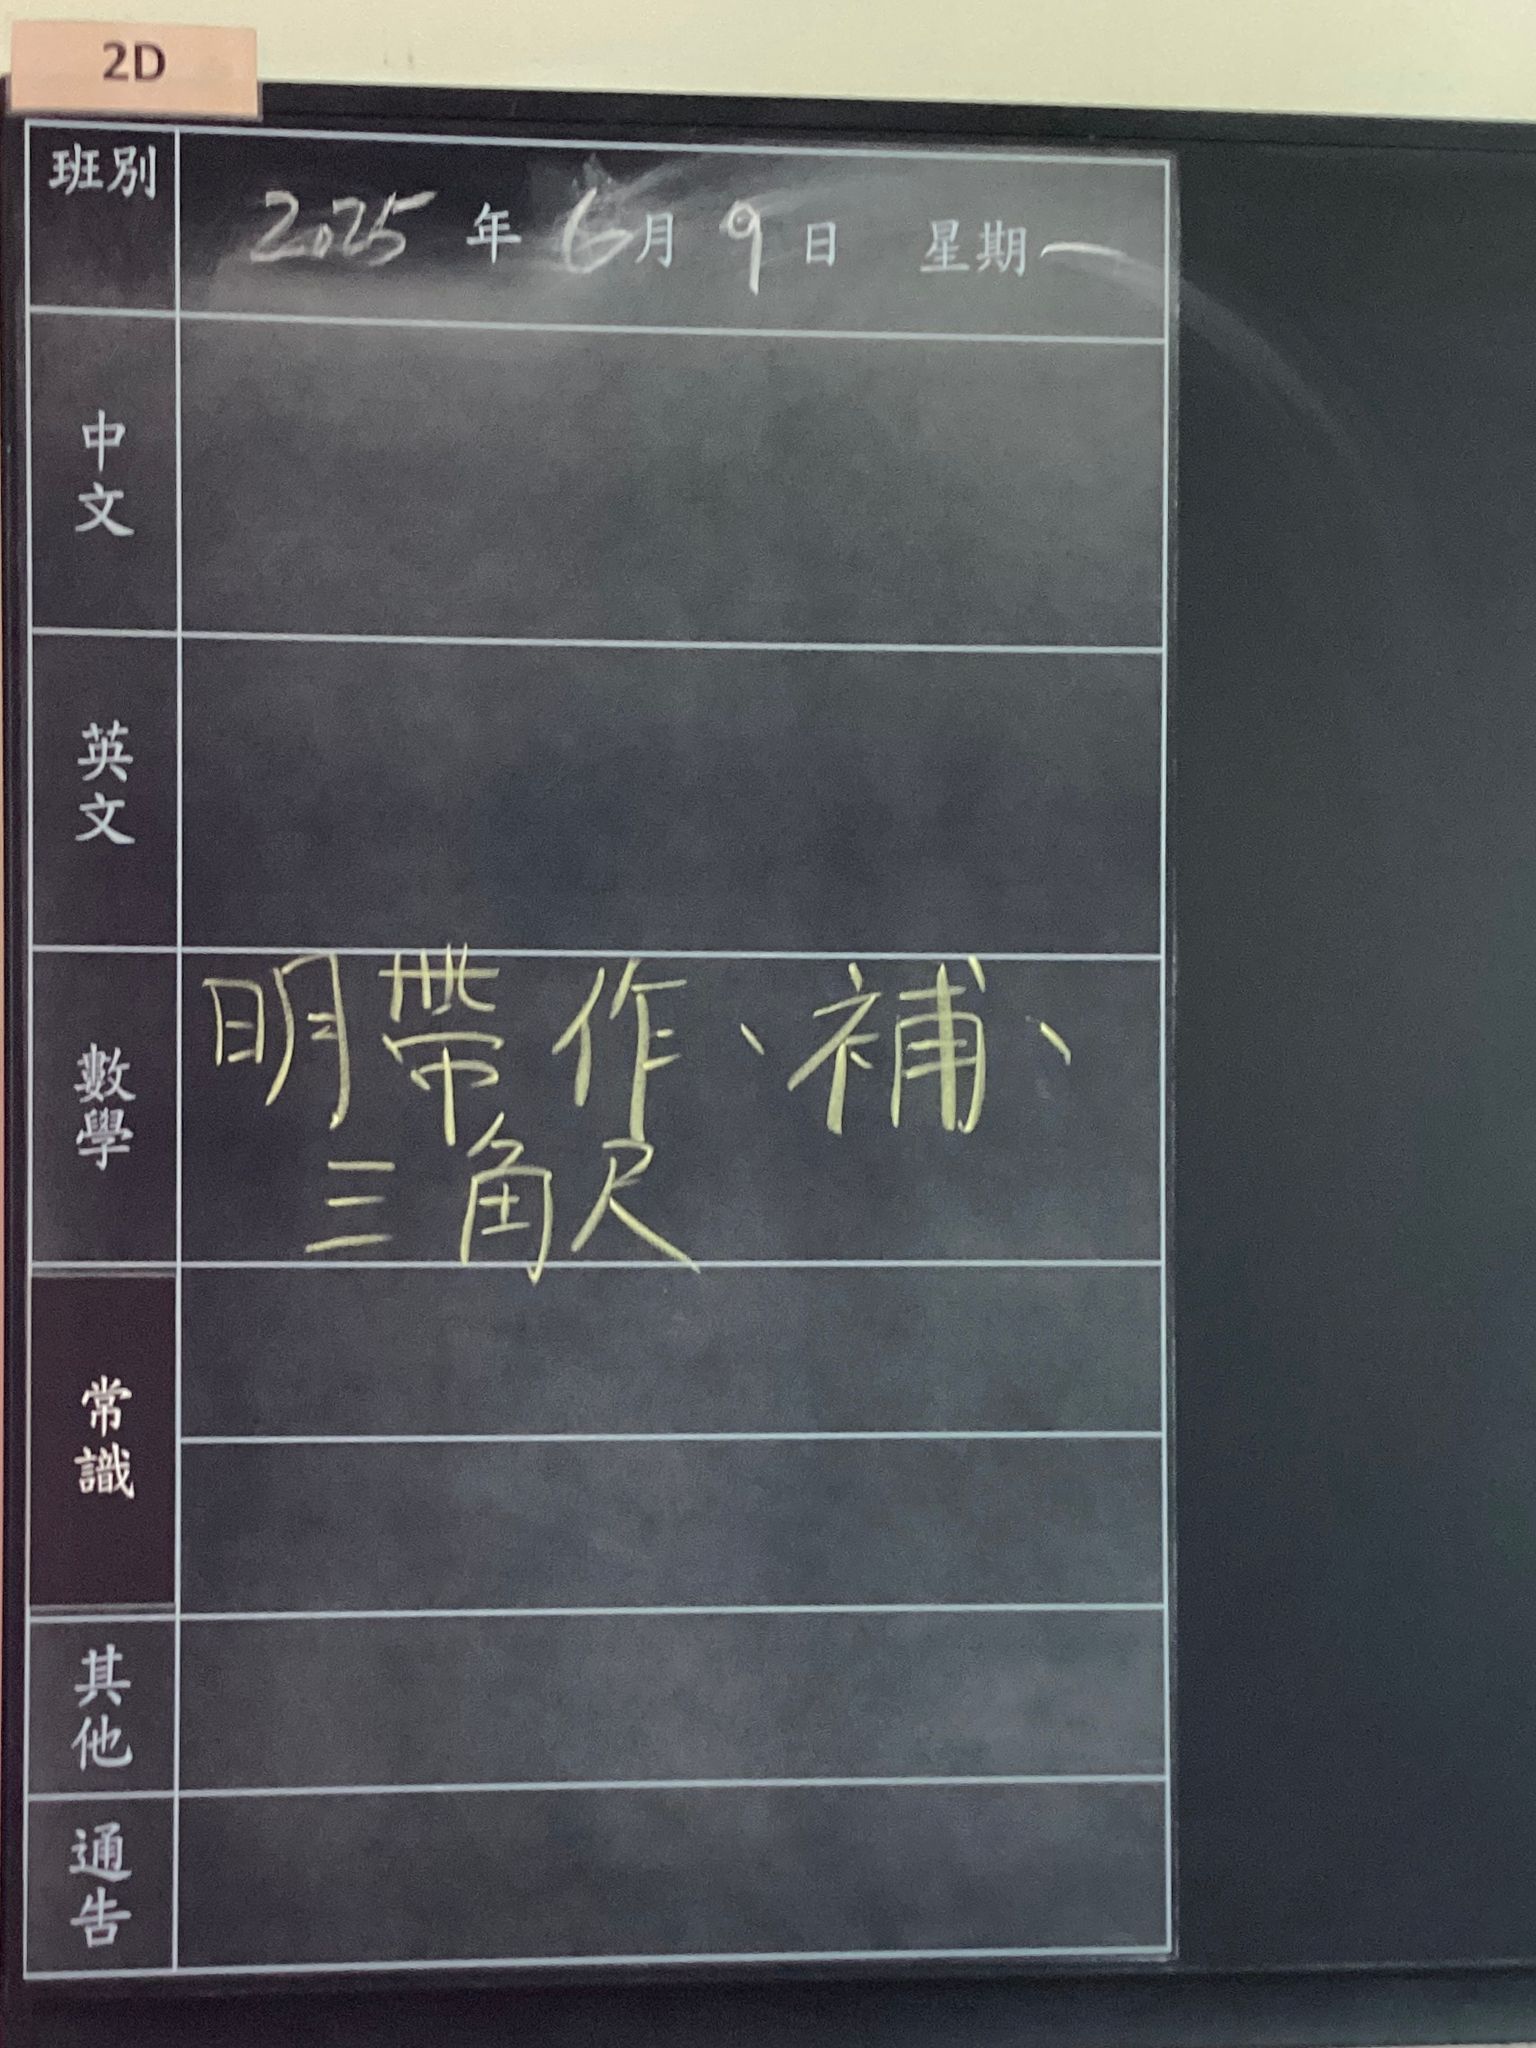 2D
班別
2025 年 6 月 9 日 星期一
中文
英文
數學
明帶作、補、
三角尺
常識
其他
通告